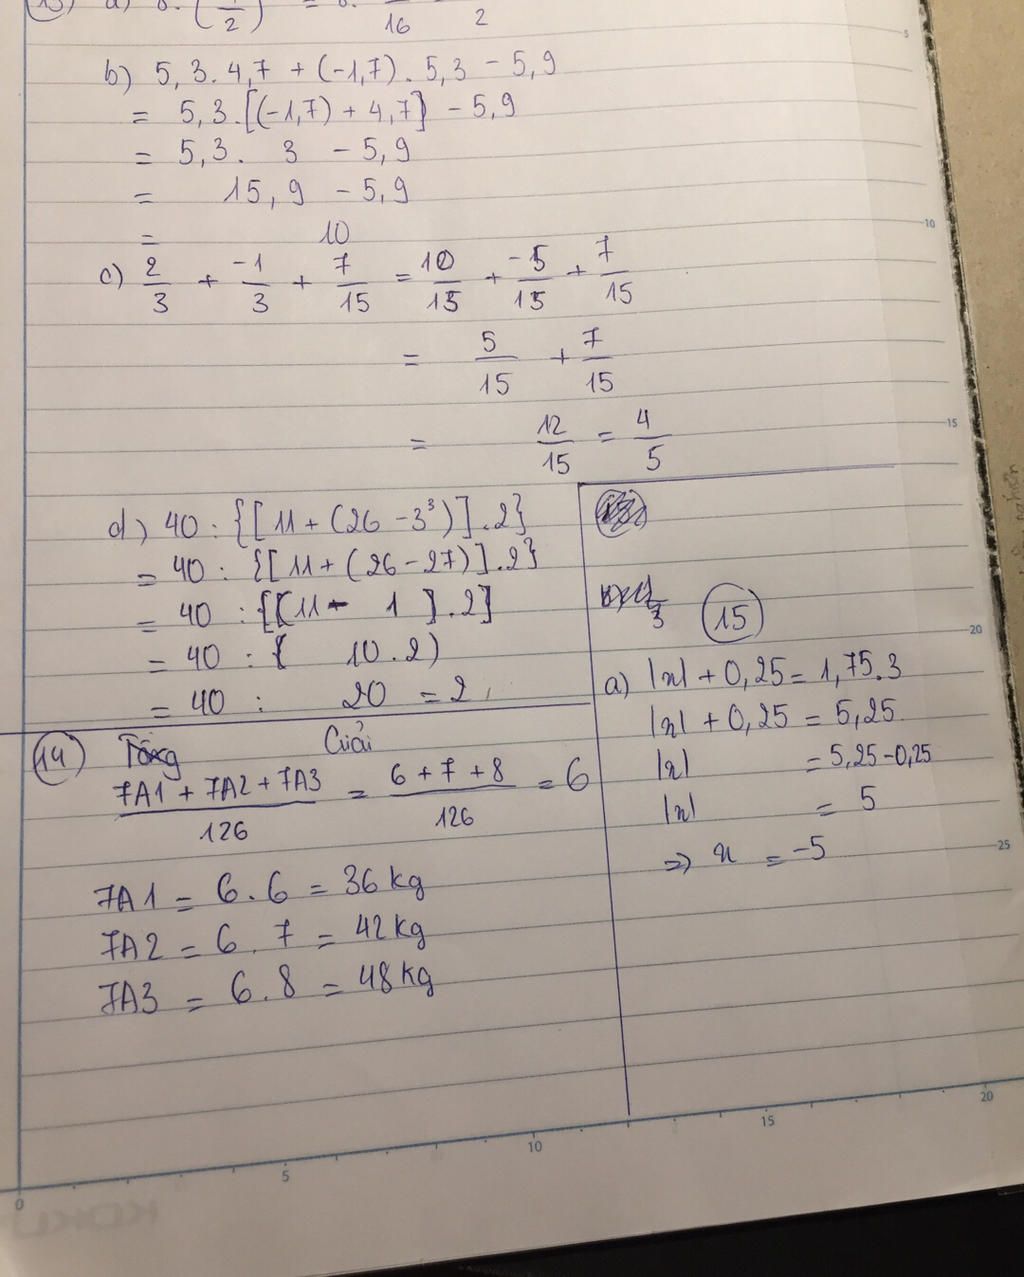 13) a) 8. (1/2) = 8. /16 2
b) 5,3.4,7 + (-1,7).5,3 - 5,9
= 5,3.[(-1,7) + 4,7] - 5,9
= 5,3. 3 - 5,9
= 15,9 - 5,9
= 10
c) 2/3 + -1/3 + 7/15 = 10/15 + -5/15 + 7/15
= 5/15 + 7/15
= 12/15 = 4/5
d) 40 : {[11 + (26 - 3³)].2}
= 40 : {[11 + (26 - 27)].2}
= 40 : {[11 - 1].2}
= 40 : { 10.2)
= 40 : 20 = 2
14) Tổng Giải
7A1 + 7A2 + 7A3/126 = 6 + 7 + 8/126 = 6
7A1 = 6.6 = 36kg
7A2 = 6.7 = 42kg
7A3 = 6.8 = 48kg
15
a) |x| + 0,25 = 1,75.3
|x| + 0,25 = 5,25
|x| = 5,25-0,25
|x| = 5
=> x = -5
5
10
15
20
25
0
5
10
15
20